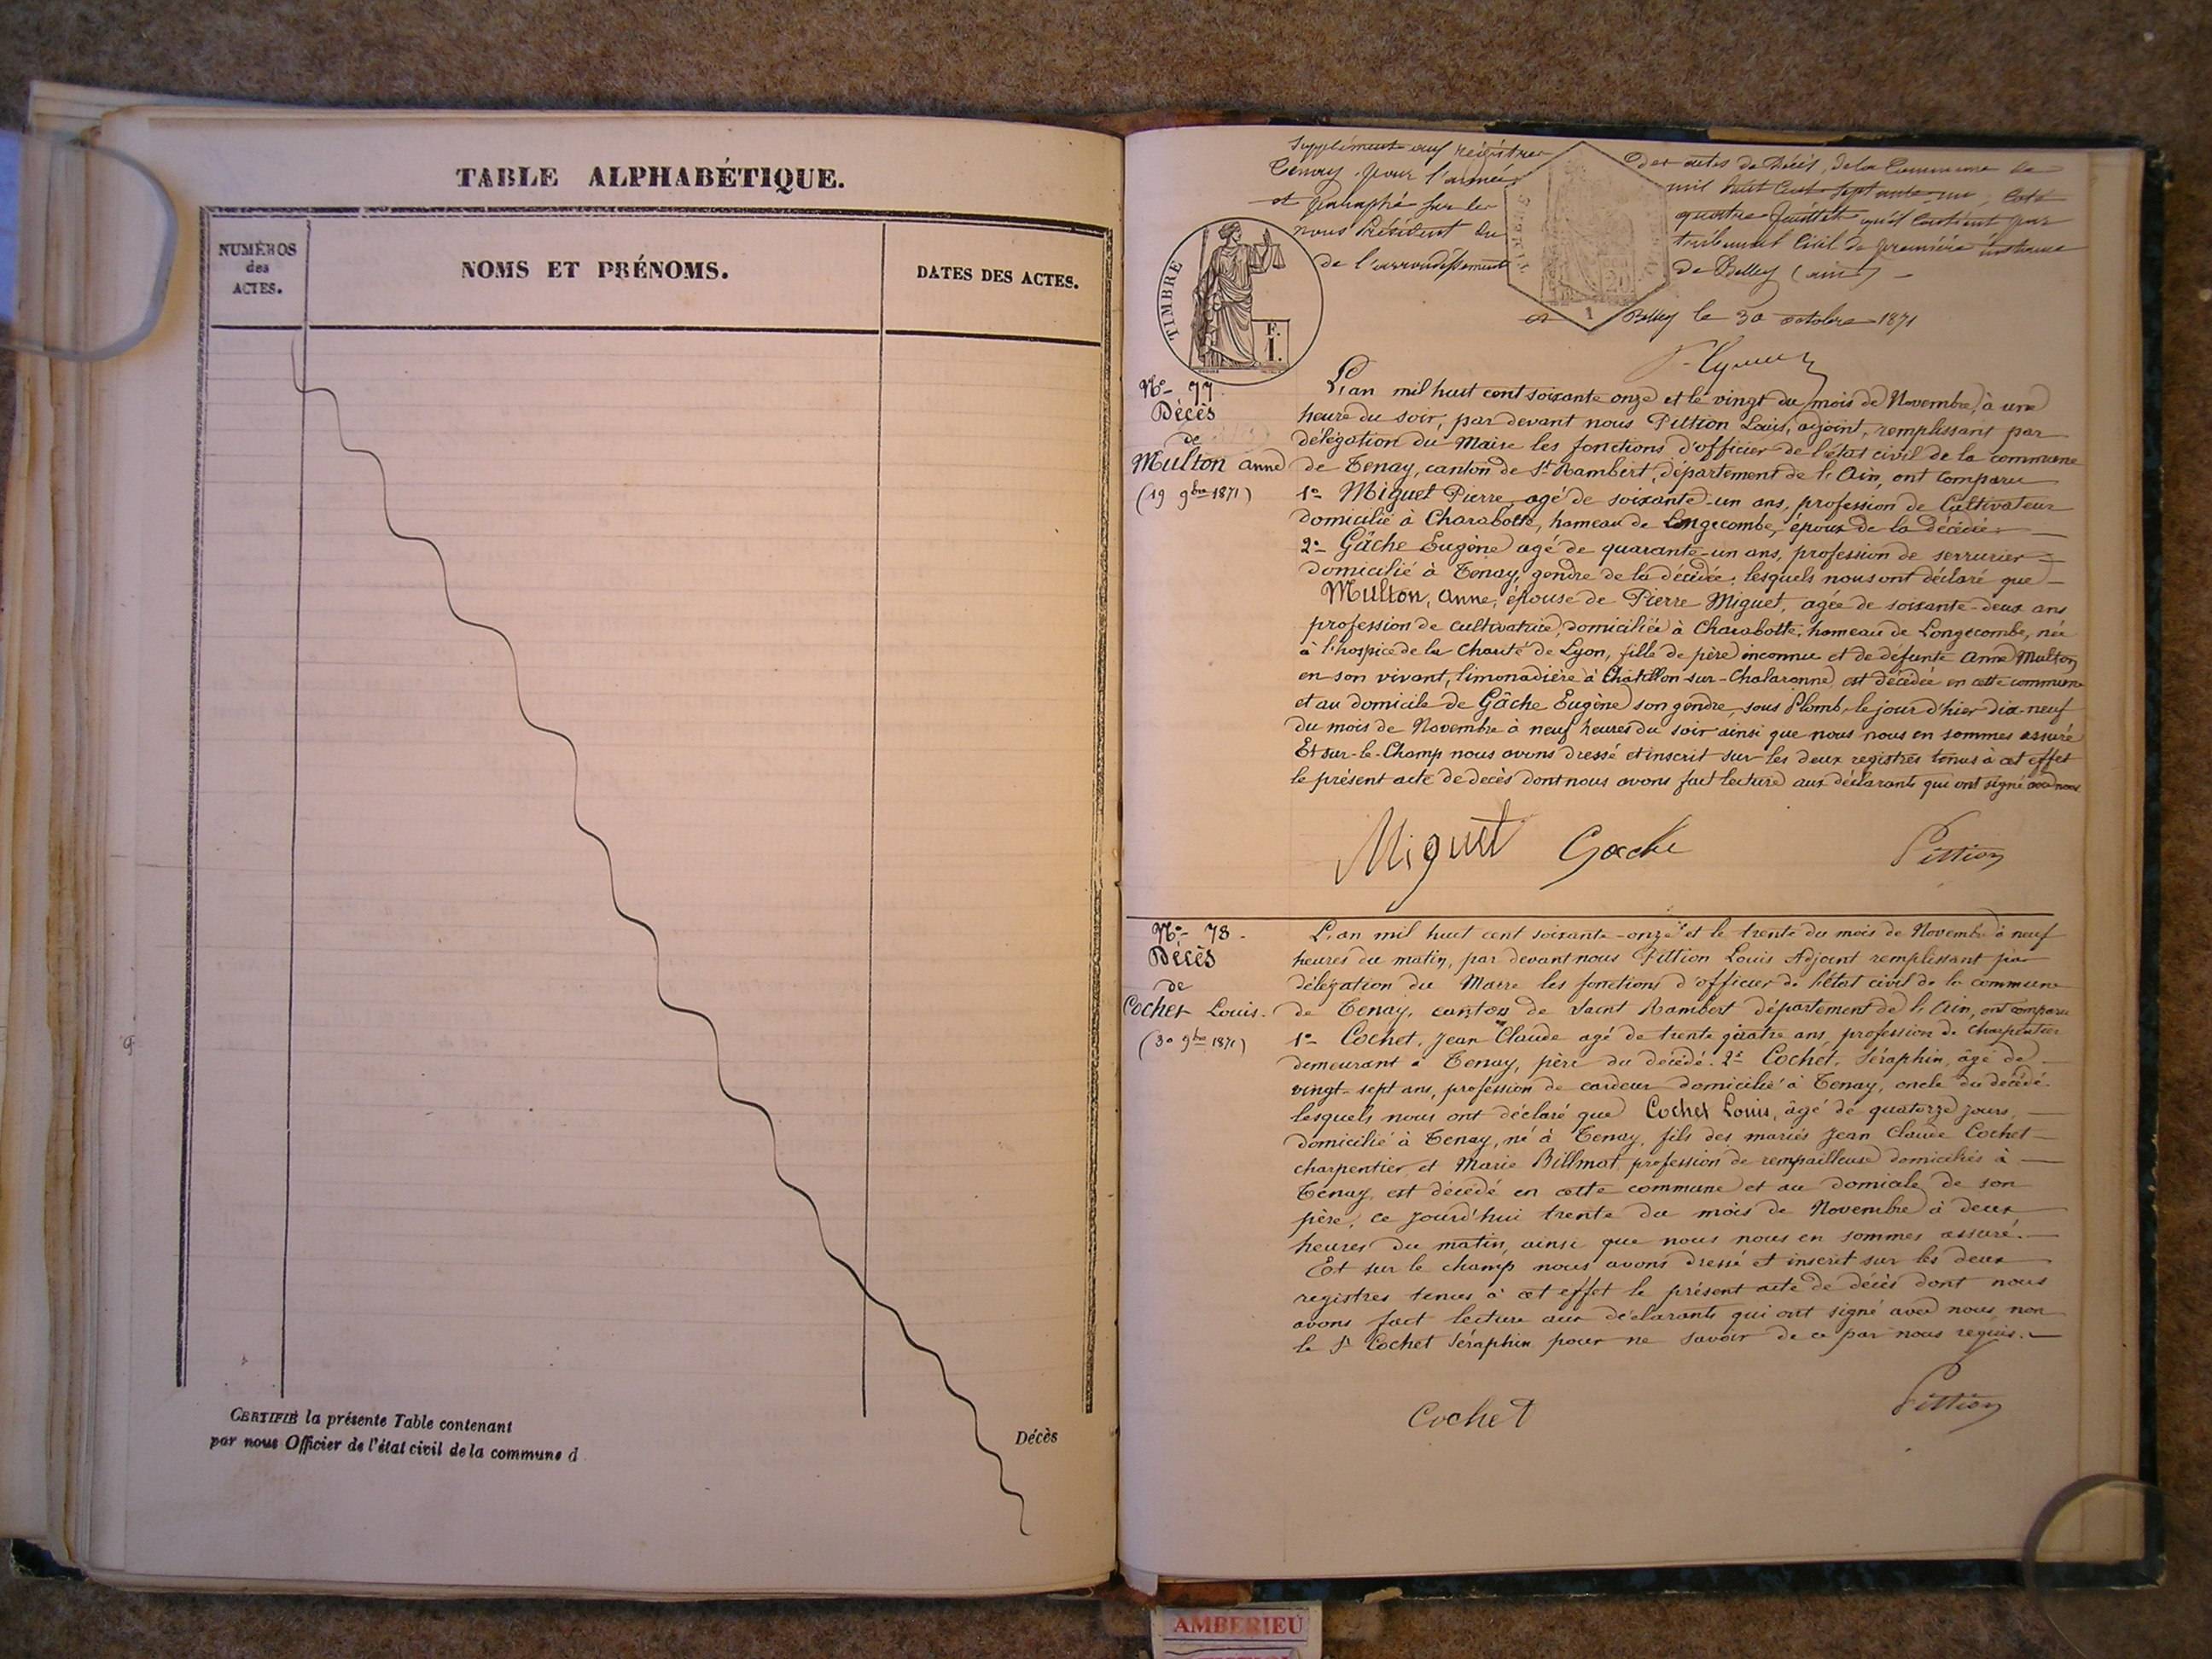 TABLE ALPHABÉTIQUE.
NUMÉROS
des
ACTES.
NOMS ET PRÉNOMS.
DATES DES ACTES.
CERTIFIÉ la présente Table contenant
Décès
par nous Officier de l'état civil de la commune d
Supplément aux registres des actes de Décès, de la Commune de
Tenay pour l'année mil huit cent septante-un, coté
et paraphé sur les quatre feuillets qu'il contient par
nous Président du tribunal Civil de première instance
de l'arrondissement de Belley (ain)
Belley le 30 octobre 1871
TIMBRE
F.
1.
20
1
No- 77
Décès
de
Multon anne
(19 9bre 1871)
L'an mil huit cent soixante onze et le vingt du mois de Novembre, à une
heure du soir, par devant nous Pittion Louis, adjoint, remplissant par
délégation du Maire les fonctions d'officier de l'état civil de la commune
de Tenay, canton de St Rambert, département de l'Ain, ont comparu
1o- Miguet Pierre, agé de soixante-un ans, profession de Cultivateur
domicilié à Charabotte, hameau de Longecombe, époux de la décédée.
2o- Gâche Eugène agé de quarante-un ans, profession de serrurier
domicilié à Tenay, gendre de la décédée, lesquels nous ont déclaré que
Multon, Anne, épouse de Pierre Miguet, agée de soixante-deux ans
profession de cultivatrice, domiciliée à Charabotte, hameau de Longecombe, née
à l'hospice de la Charité de Lyon, fille de père inconnu et de défunte Anne Multon
en son vivant, limonadière à Châtillon-sur-Chalaronne, est décédée en cette commune
et au domicile de Gâche Eugène son gendre, sous Plomb, le jour d'hier dix-neuf
du mois de Novembre à neuf heures du soir ainsi que nous nous en sommes assuré
Et sur-le-Champ nous avons dressé et inscrit sur les deux registres tenus à cet effet
le présent acte de décès dont nous avons fait lecture aux déclarants qui ont signé avec nous
Miguet Gache Pittion
No- 78-
Décès
de
Cochet Louis.
(30 9bre 1871)
L'an mil huit cent soixante-onze et le trente du mois de Novembre à neuf
heures du matin, par devant nous Pittion Louis Adjoint remplissant par
délégation du Maire les fonctions d'officier de l'état civil de la commune
de Tenay, canton de Saint Rambert département de l'Ain, ont comparu
1o- Cochet, Jean Claude agé de trente quatre ans, profession de charpentier
demeurant à Tenay, père du décédé. 2o Cochet, Séraphin, âgé de
vingt-sept ans, profession de cardeur domicilié à Tenay, oncle du décédé
lesquels nous ont déclaré que Cochet Louis, âgé de quatorze jours,
domicilié à Tenay, né à Tenay, fils des mariés Jean Claude Cochet
charpentier et Marie Billmat, profession de rempailleuse domiciliés à
Tenay, est décédé en cette commune et au domicile de son
père, ce jourd'hui trente du mois de Novembre à deux
heures du matin, ainsi que nous nous en sommes assuré.
Et sur le champ nous avons dressé et inscrit sur les deux
registres tenus à cet effet le présent acte de décès dont nous
avons fait lecture aux déclarants qui ont signé avec nous non
le Sr Cochet Séraphin pour ne savoir de ce par nous requis.
Cochet Pittion
AMBERIEU